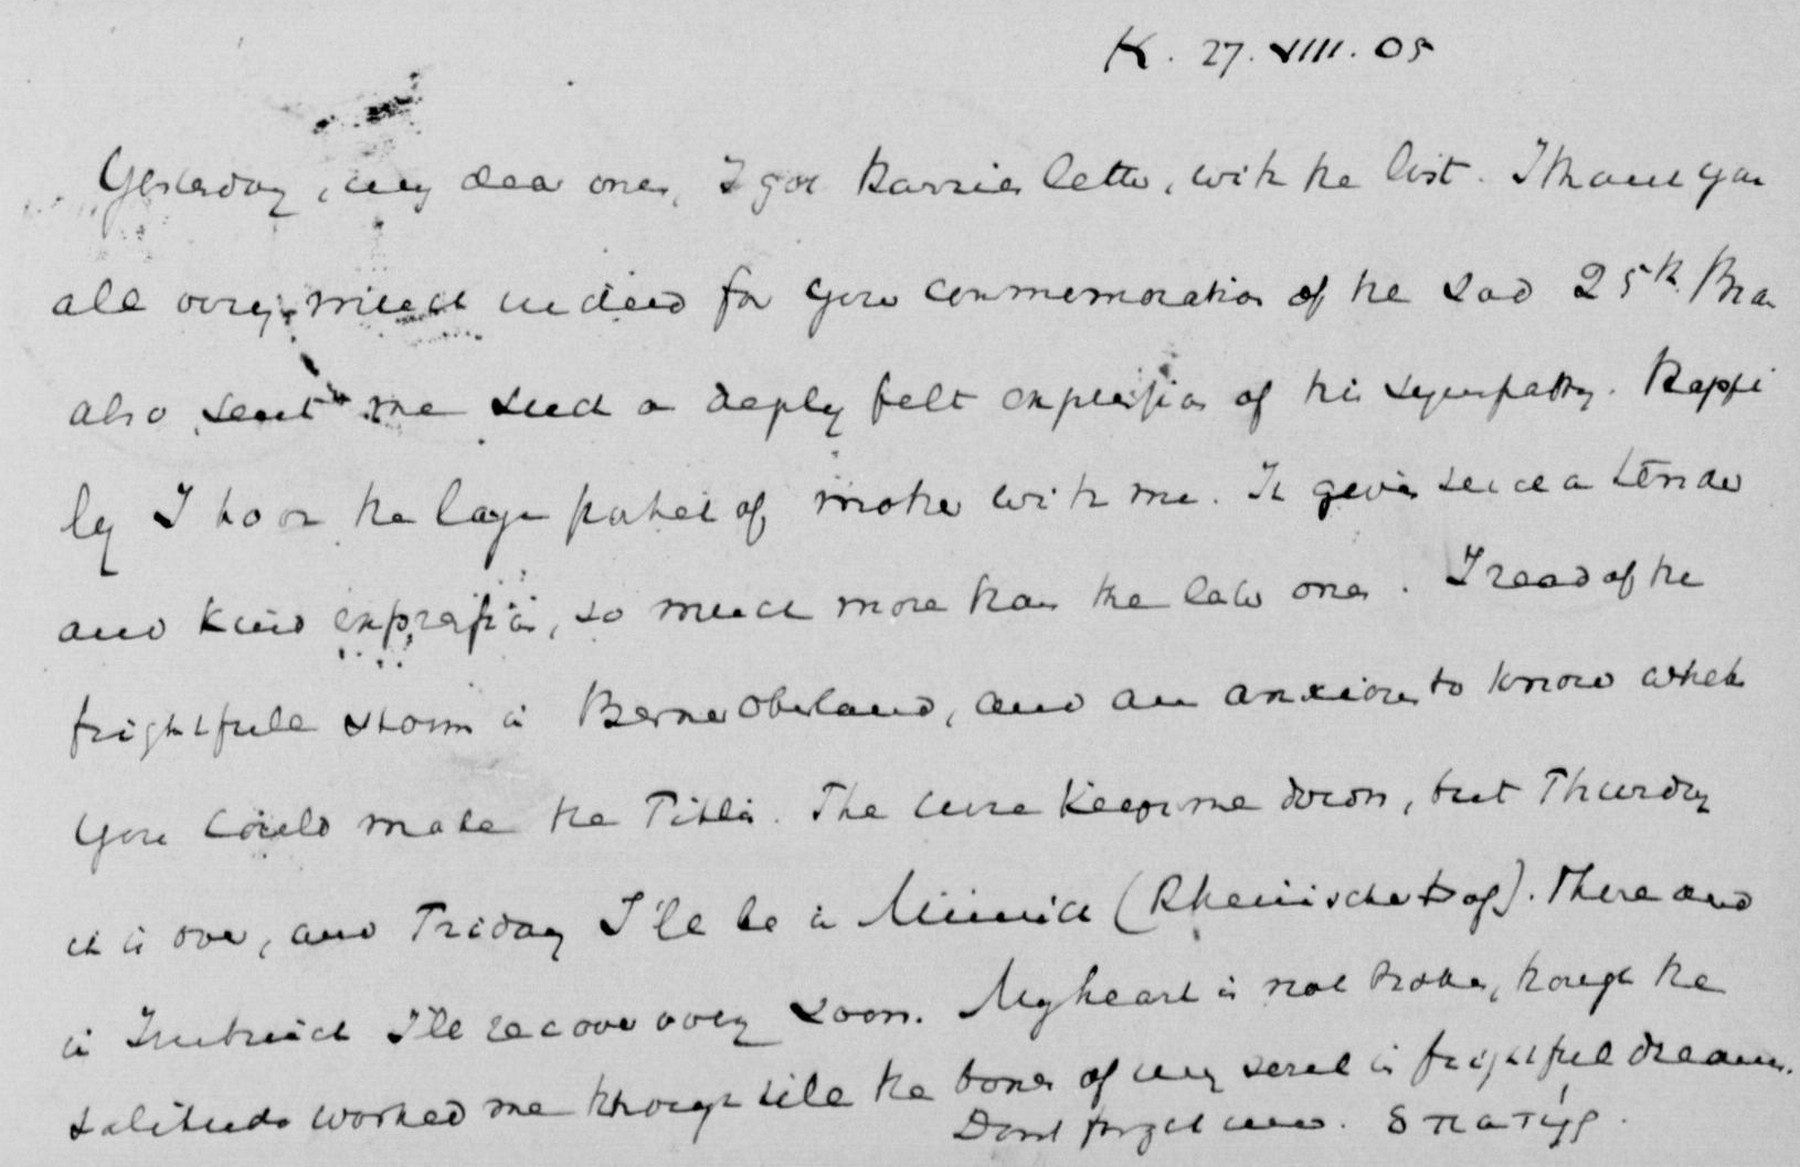 K. 27. VIII. 05
Yesterday, my dear ones, I got Karries letter, with the list. Thank you
all very much indeed for your commemoration of the sad 25th.
also sent me such a deeply felt expression of his sympathy. Happi
ly I took the large portret of mother with me. It gives such a tender
and kind expression, so much more than the later ones. I read of the
frightfull storm in Berner Oberland, and am anxious to know wheth
you could make the Titlis. The cure keeps me down, but Thursday
it is over, and Friday I'll be in Münich (Rheinischer Hof). There and
in Innbruck I'll recover very soon. My heart is not broken, though the
solitude worked me through till the bones of my soul in frightful dreams.
Dont forget me. ὁ πατήρ.